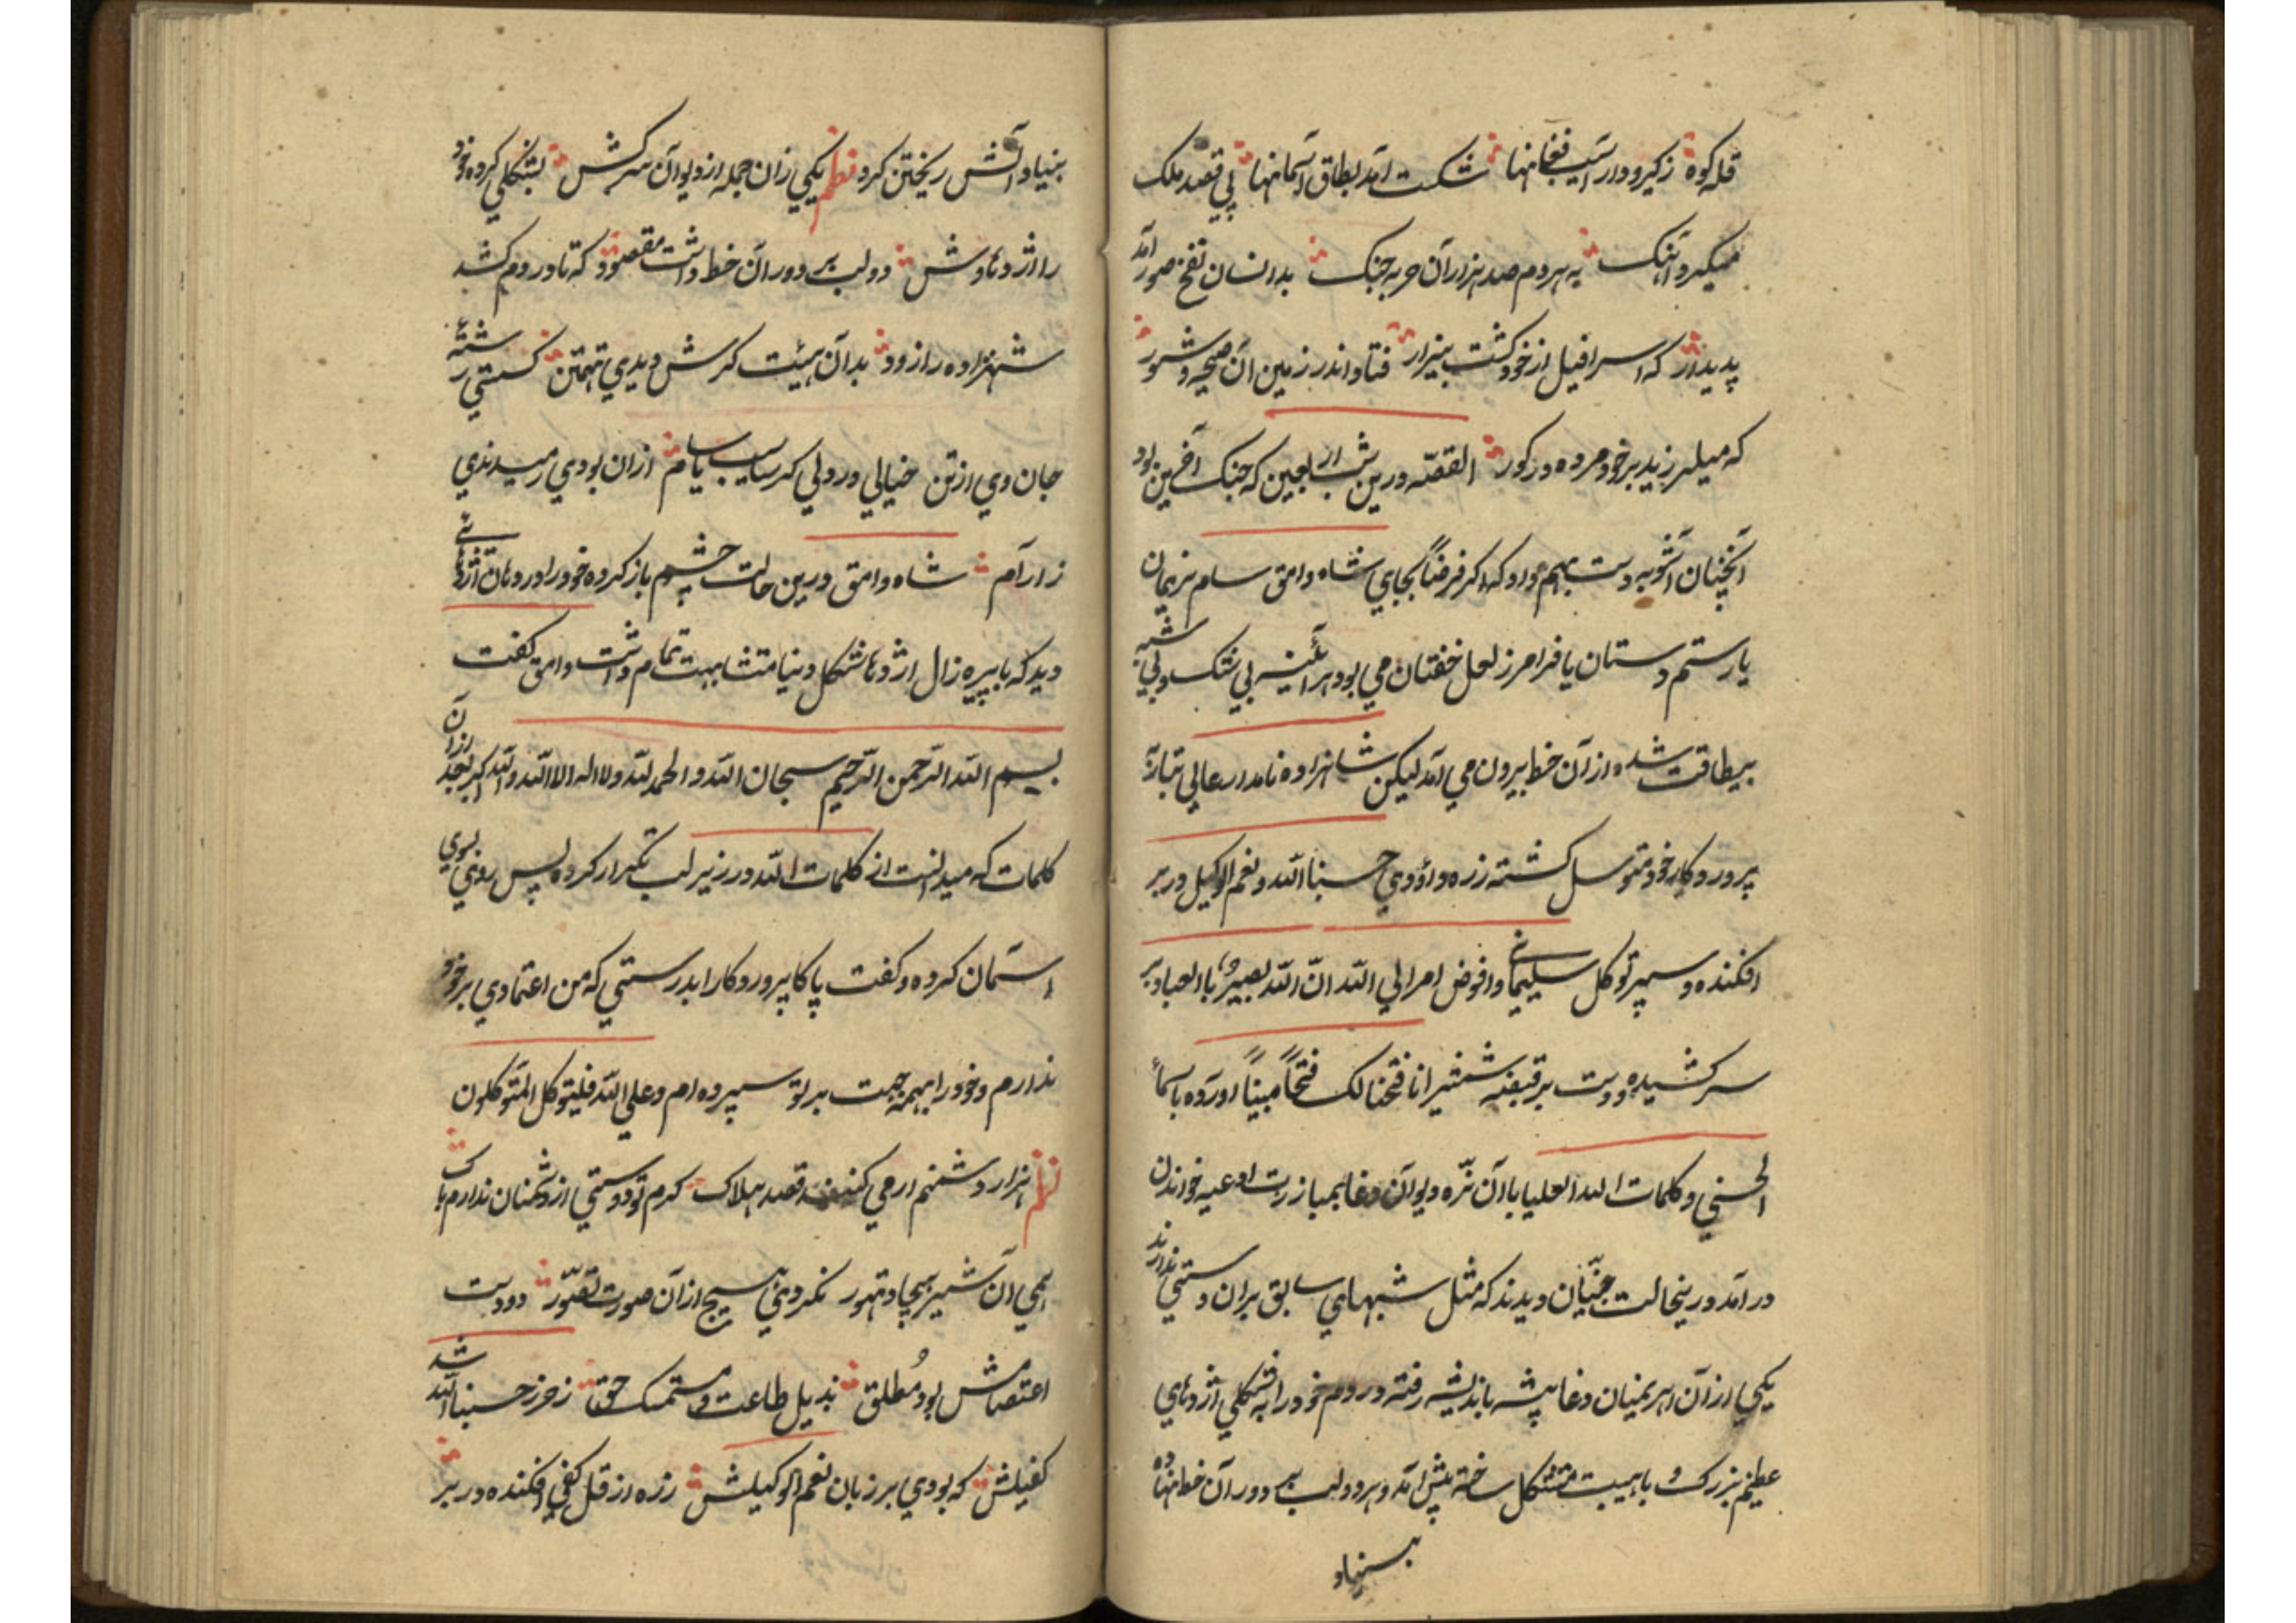 قله کوه زکیرودار آسیب فغانها شکست آمد بطاق آسمانها پی قصد ملک
میکرد آهنگ به هر دم صد هزاران حربه جنک بدانسان نفخ صور آمد
پدیدار که اسرافیل از خود کشت بیزار فتاد اندر زمین آن صیحه و شور
که میلرزید بر خود مرده در کور القصّه درین شب اربعین که جنک آخرین بود
آنچنان آشوب دست بهم داد که اکر فرضاً بجای شاه وامق سام نریمان
یا رستم دستان یا فرامرز لعل خفتان می بود هر آئینه بی شک و بی شبه
بیطاقت شده از آن خط بیرون می آمد لیکن شاهزاده نامدار عالی تبار
پرورد کار خود متوسل کشته زره داؤدی حسبنا الله و نعم الوکیل در بر
افکنده و سپر توکل سلیمانی وافوض امرالی الله انّ الله بصیرٌ باالعباد بر
سر کشیده و دست بر قبضه شمشیر انا فتحنا لک فتحاً مبیناً آورده باسمأ
الحسنی و کلمات الله العلیا با آن نرّه دیوان دغا بمبارزت ادعیه خواندن
در آمد درینحالت جنّیان دیدند که مثل شبهای سابق بران دستی ندارند
یکی از آن اهریمنیان دغا پیشه باندیشه رفته در دم خود را به شکلی اژدهای
عظیم بزرک و با هیبت متشکل ساخته پیش آمد و هر دو لب بر دور آن خط نهاده
بنیاد
بنیاد آتش ریختن کرد نظم یکی زان جمله از دیوان سرکش بشکلی کرده خود
را اژدهاوش دو لب بر دور آن خط داشت مقصود که تا در دم کشد
شهزاده را زود بدان هیئت کرش دیدی تهمتن کسستی رشته
جان وی از تن خیالی در دلی اکر سایب یا سام ازان بودی رمیدندی
ز آرام شاه وامق درین حالت چشم باز کرده خود را در دهان اژدهائی
دید که با پیره زال اژدها شکل دنیا متشابهت تمام داشت وامق کفت
بسم الله الرّحمن الرّحیم سبحان الله و الحمدلله ولا اله الا الله والله اکبر بعد از آن
کلمات که میدانست از کلمات الله در زیر لب تکرار کرده پس روی بسوی
آسمان کرده و کفت پاکا پرورد کارا بدرستی که من اعتمادی بر خود
ندارم و خود را بهمه جهت بر تو سپرده ام و علی الله فلیتوکل المتوکلون
نظم هزار دشمنم ار می کنند قصد هلاک کرم تو دوستی از دشمنان ندارم باک
همی آن شیر هیجا و تهور نکردی هیچ از آن صورت تصوّر دو دست
اعتصامش بود مُطلق بذیل طاعت و مستمسک حق ز حرز حسبنا الله شد
کفیلش که بودی بر زبان نعم الوکیلش زره از قل کفی افکنده در بر